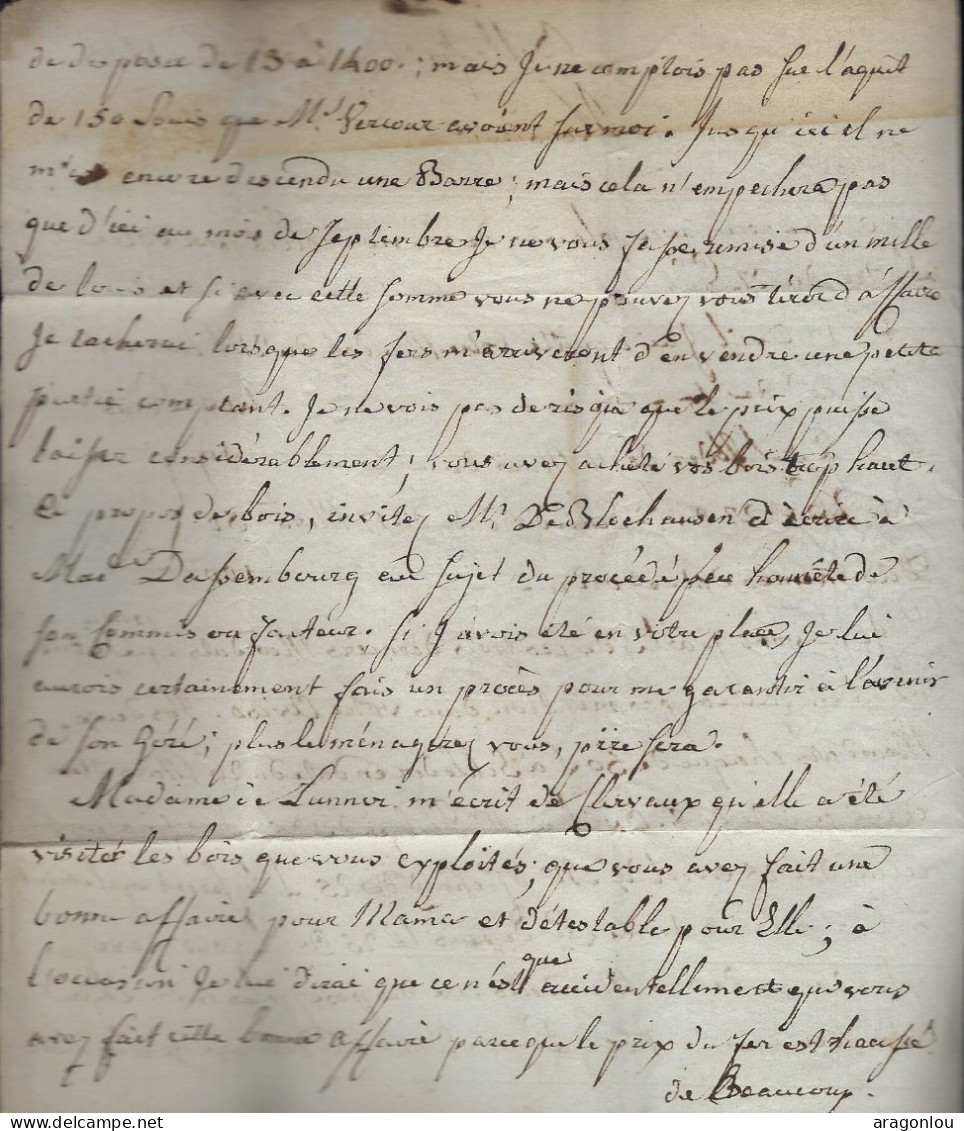 de dépasser de 13 à 1400.; mais Je ne comptois pas sur l'aquit
de 150 Louis que Mrs Vercour avoient sur moi. Jusqu'ici il ne
m'est encore descendu une Barre; mais cela n'empechera pas
que d'ici au mois de Septembre Je ne vous fasse remise d'un mille
de louis et si avec cette somme vous ne pouvez vous tirer d'affaire
Je tacherai lorsque les fers m'arriveront d'en vendre une petite
partie comptant. Je ne vois pas de risque que le prix puisse
baisser considérablement; vous avez acheté vos bois trop haut.
à propos de bois, invitez Mr. De Blochausen d'écrire à
Made Dassembourg au sujet du procédé peu honnête de
son Commis ou facteur. Si J'avois été en votre place, Je lui
aurois certainement fais un procès pour me garantir à l'avenir
de son ; plus le ménagerez vous, pire sera.
Madame de Lannoi m'écrit de Clervaux qu'elle a été
visiter les bois que vous exploités; que vous avez fait une
bonne affaire pour Mama et détestable pour Elle; à
l'occasion Je lui dirai que ce n'est que accidentellement que vous
avez fait cette bonne affaire parceque le prix du fer est haussé
de Beaucoup.
aragonlou